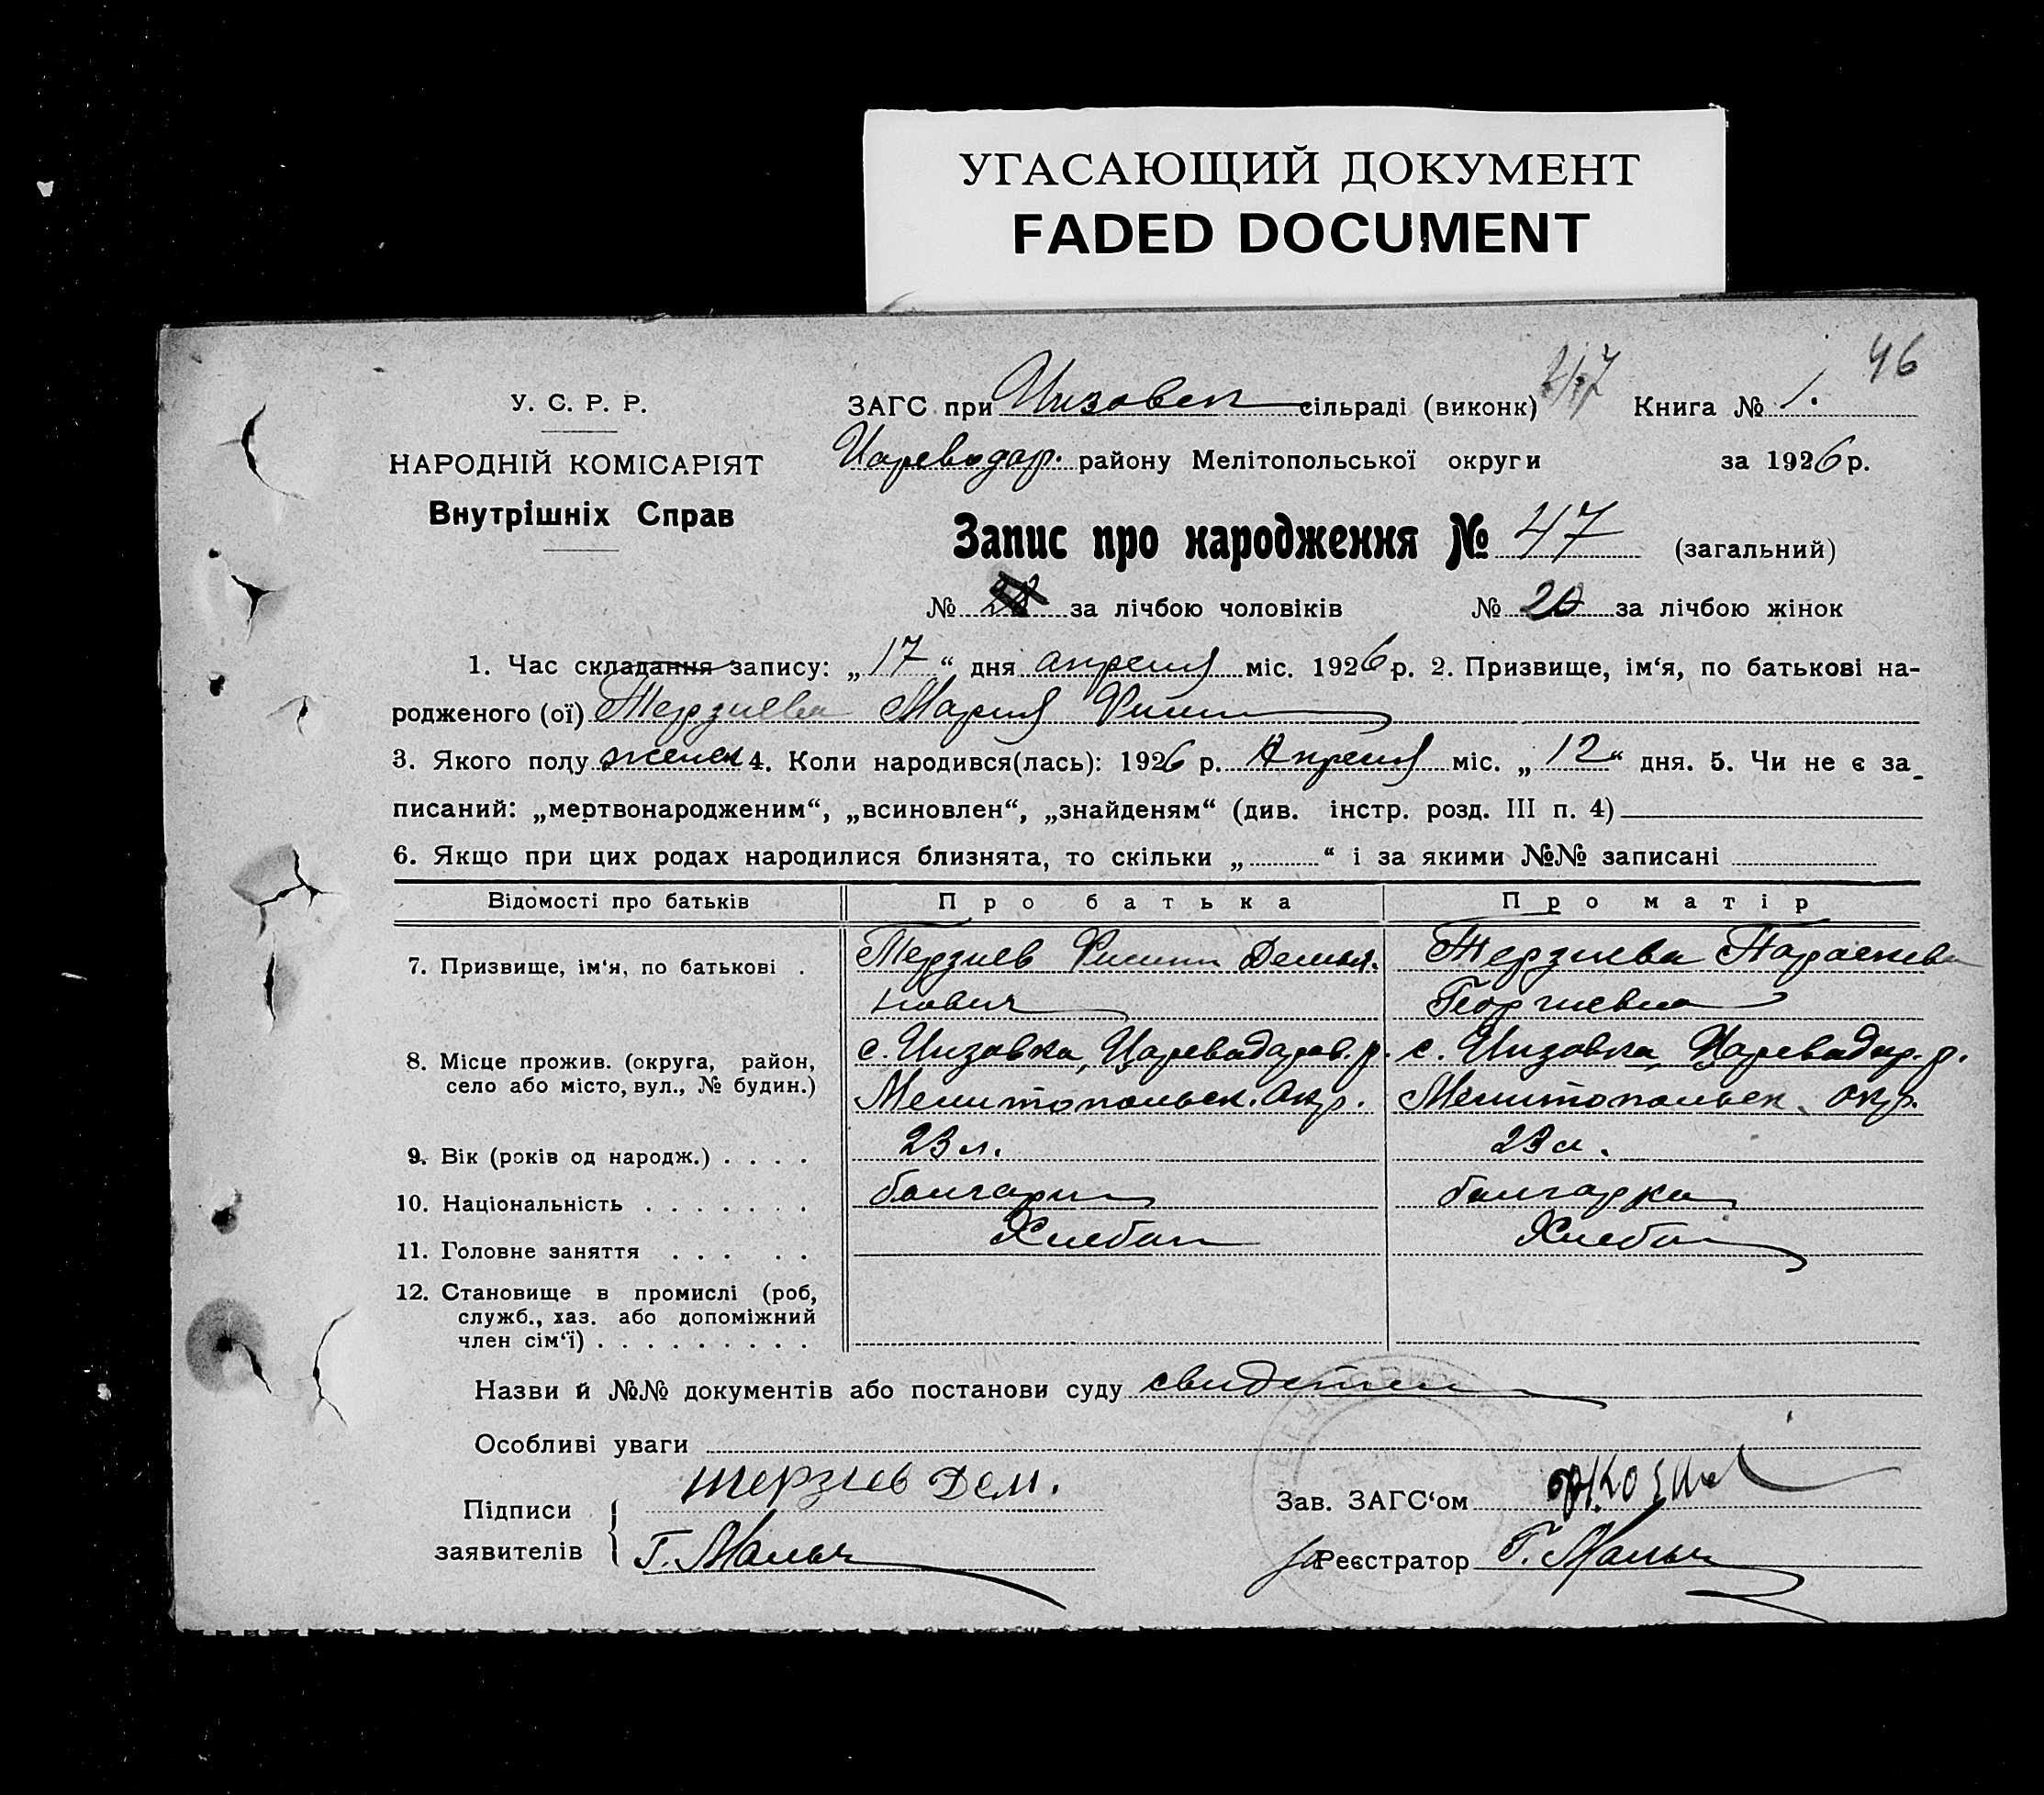 УГАСАЮЩИЙ ДОКУМЕНТ
FADED DOCUMENT
46
У. С. Р. Р.
НАРОДНІЙ КОМІСАРІЯТ
Внутрішніх Справ
ЗАГС при Инзовск сільраді (виконк) 247 Книга № 1.
Цареводар. району Мелітопольської округи за 1926 р.
Запис про народження № 47 (загальний)
№ за лічбою чоловіків № 20 за лічбою жінок
1. Час складання запису: „17“ дня апреля міс. 1926 р. 2. Призвище, ім‘я, по батькові на-
родженого (ої) Терзиева Мария Филип
3. Якого полу женск 4. Коли народився(лась): 1926 р. Апреля міс. „12“ дня. 5. Чи не є за-
писаний: „мертвонародженим“, „всиновлен“, „знайденям“ (див. інстр. розд. III п. 4)
6. Якщо при цих родах народилися близнята, то скільки „ “ і за якими №№ записані
Відомості про батьків Про батька Про матір
7. Призвище, ім‘я, по батькові . Терзиев Филипп Демья- Терзиева Параскева
нович Георгиевна
8. Місце прожив. (округа, район, с. Инзовка, Цареводаров. р. с. Инзовка, Цареводар. р.
село або місто, вул., № будин.) Мелитопольск. окр. Мелитопольск. окр.
9. Вік (років од народж.) . . . . 23 л. 23 л.
10. Національність . . . . . . . болгарин болгарка
11. Головне заняття . . . . . Хлебоп Хлебоп
12. Становище в промислі (роб,
служб., хаз. або допоміжний
член сім‘ї) . . . . . . . . .
Назви й №№ документів або постанови суду свидетел
Особливі уваги
Підписи терзіев Дем. Зав. ЗАГС‘ом
заявителів Г. Мальч за Реєстратор Г. Мальч